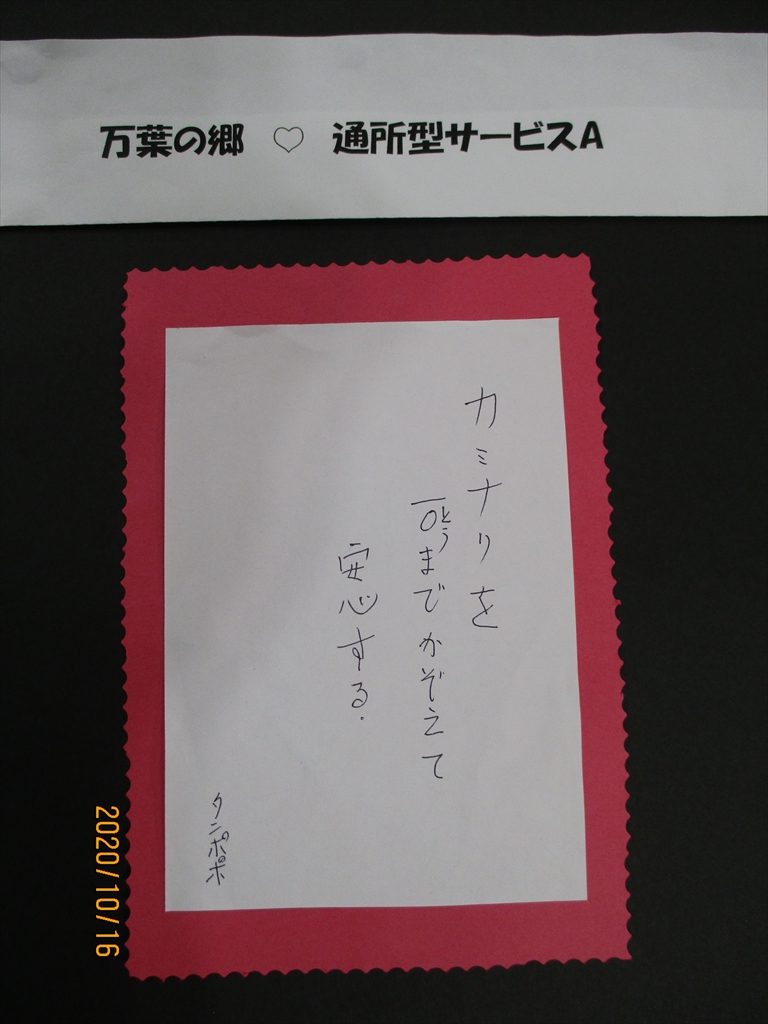 万葉の郷 ♡ 通所型サービスA
カミナリを
10とうまでかぞえて
安心する.
タンポポ
2020/10/16